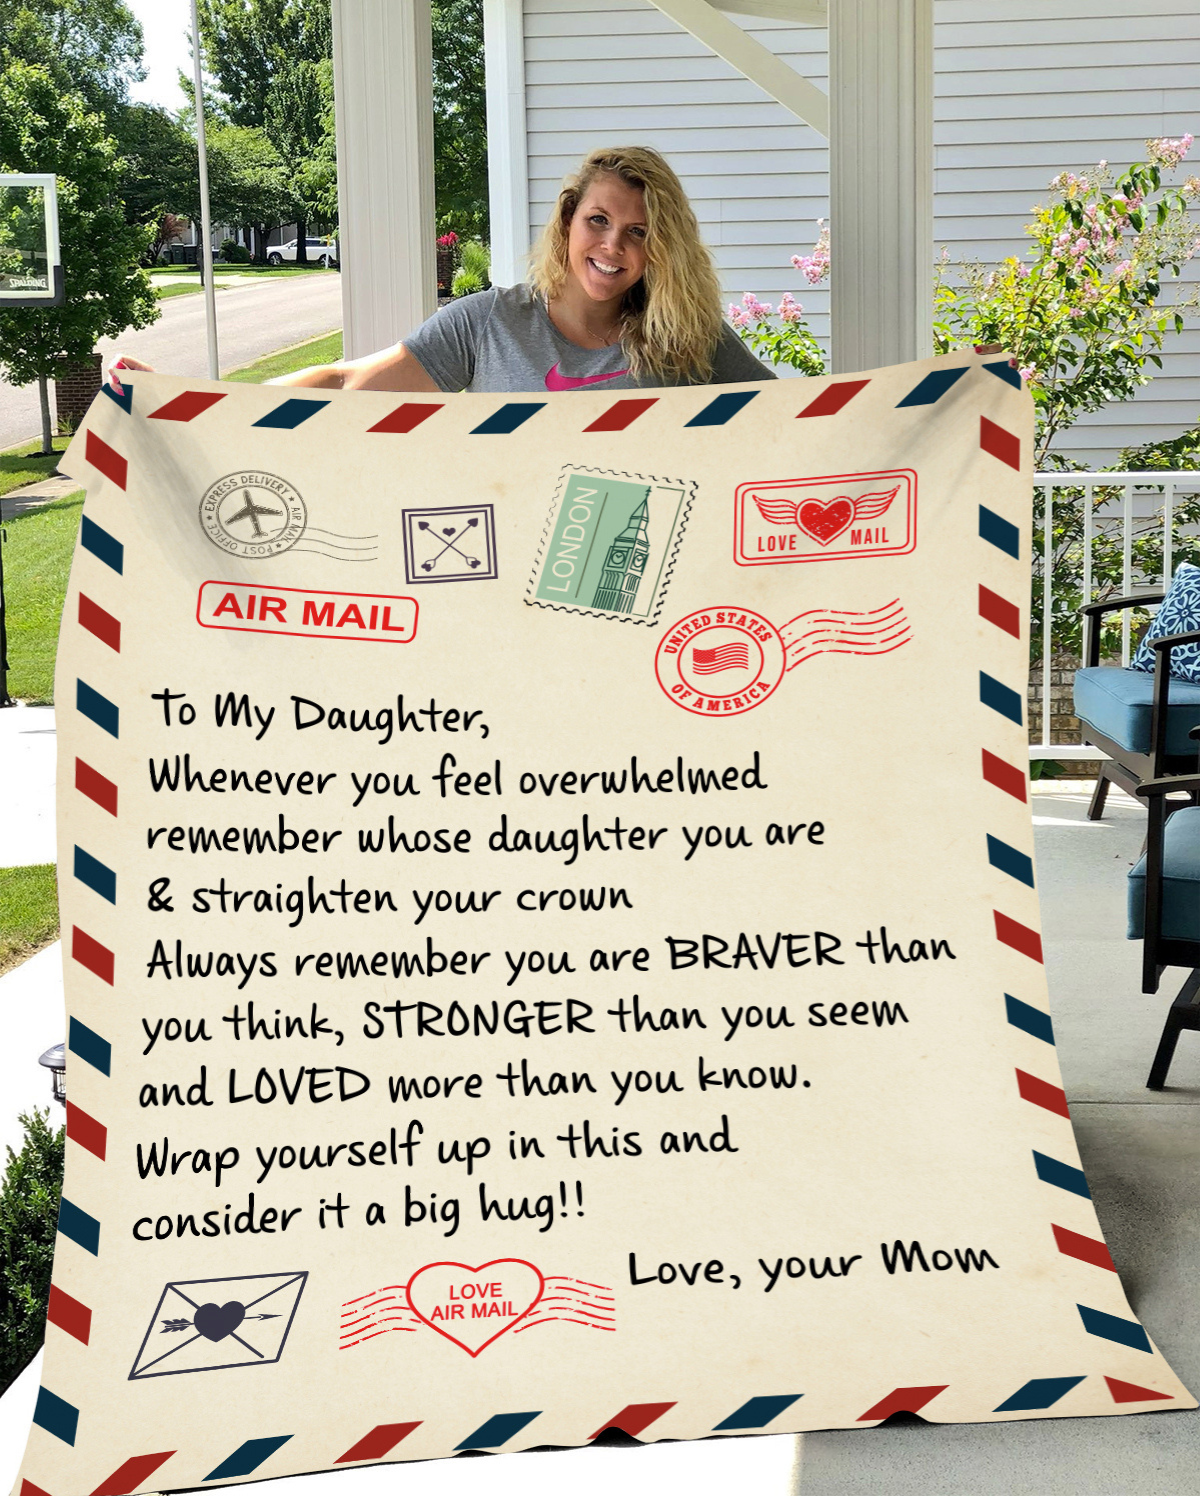 SPALDING
EXPRESS DELIVERY
AIR MAIL
POST OFFICE
LONDON
LOVE MAIL
AIR MAIL
UNITED STATES
OF AMERICA
To My Daughter,
Whenever you feel overwhelmed
remember whose daughter you are
& straighten your crown
Always remember you are BRAVER than
you think, STRONGER than you seem
and LOVED more than you know.
Wrap yourself up in this and
consider it a big hug!!
Love, your Mom
LOVE
AIR MAIL